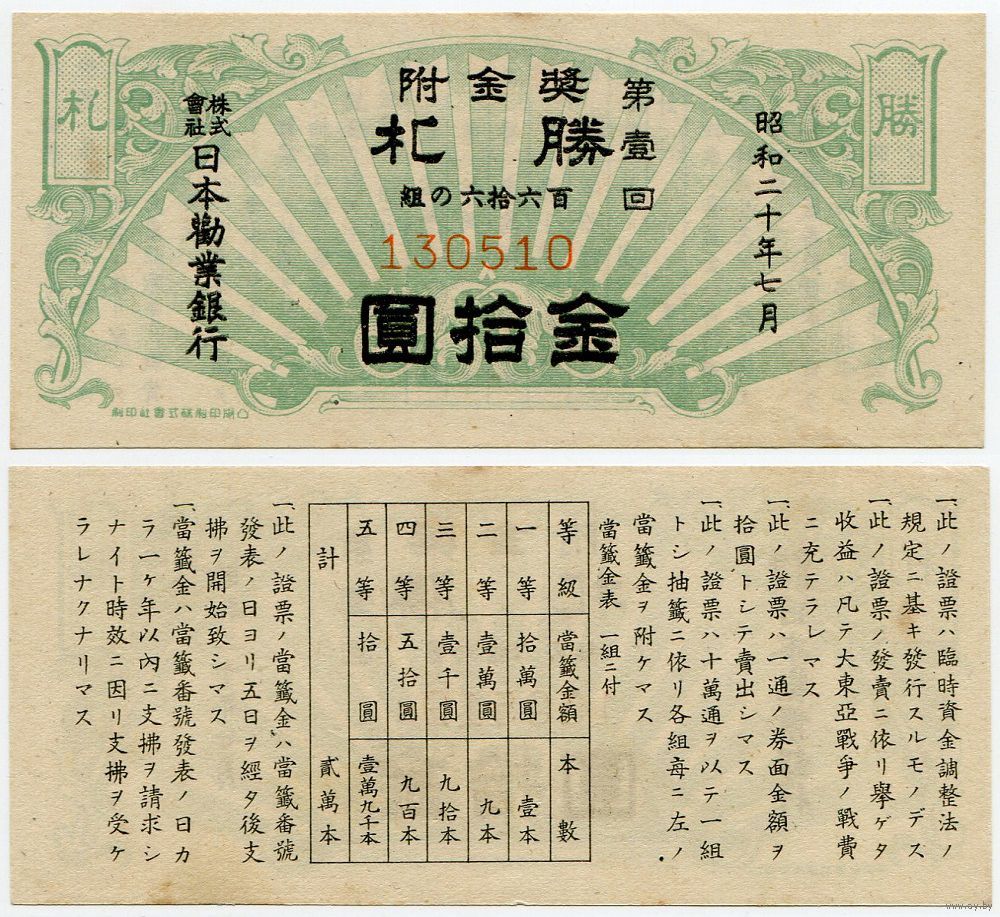 勝
札
昭和二十年七月
第壹回
獎金附
勝札
百六拾六の組
130510
金拾圓
株式會社
日本勸業銀行
凸版印刷株式會社印刷
一、此ノ證票ハ臨時資金調整法ノ
規定ニ基キ發行スルモノデス
一、此ノ證票ノ發賣ニ依リ擧ゲタ
收益ハ凡テ大東亞戰爭ノ戰費
ニ充テラレマス
一、此ノ證票ハ一通ノ券面金額ヲ
拾圓トシテ賣出シマス
一、此ノ證票ハ十萬通ヲ以テ一組
トシ抽籤ニ依リ各組每ニ左ノ
當籤金ヲ附ケマス
當籤金表 一組ニ付
等級 當籤金額 本數
一等 拾萬圓 壹本
二等 壹萬圓 九本
三等 壹千圓 九拾本
四等 五拾圓 九百本
五等 拾圓 壹萬九千本
計 貳萬本
一、此ノ證票ノ當籤金ハ當籤番號
發表ノ日ヨリ五日ヲ經タ後支
拂ヲ開始致シマス
一、當籤金ハ當籤番號發表ノ日カ
ラ一ヶ年以內ニ支拂ヲ請求シ
ナイト時效ニ因リ支拂ヲ受ケ
ラレナクナリマス
www.ay.by